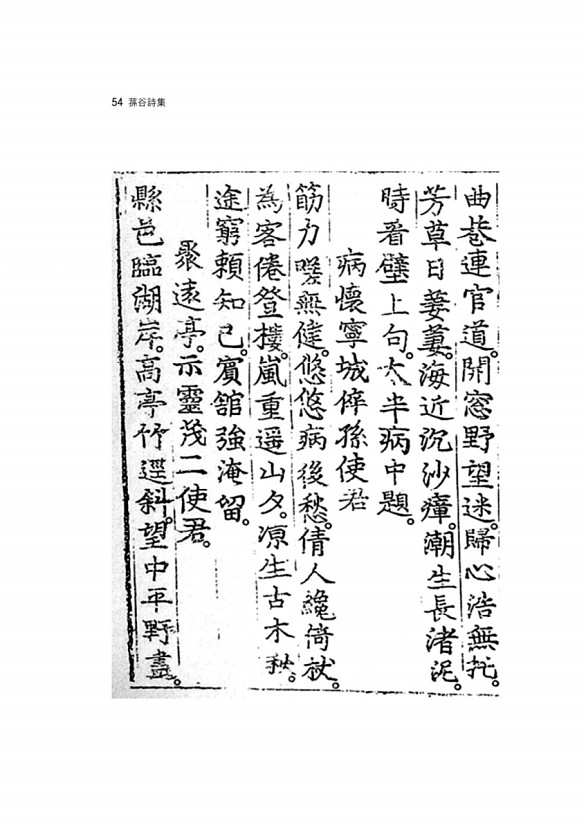 54 蓀谷詩集
曲巷連官道。開窓野望迷。歸心浩無托。
芳草日萋萋。海近沉沙瘴。潮生長渚泥。
時看壁上句。太半病中題。
病懷寧城倅孫使君
筋力嗟無健。悠悠病後愁。倩人纔倚杖。
為客倦登樓。嵐重遥山夕。凉生古木秋。
途窮頼知己。賓舘強淹留。
聚遠亭。示靈茂二使君。
縣邑臨湖岸。高亭竹逕斜。望中平野盡。